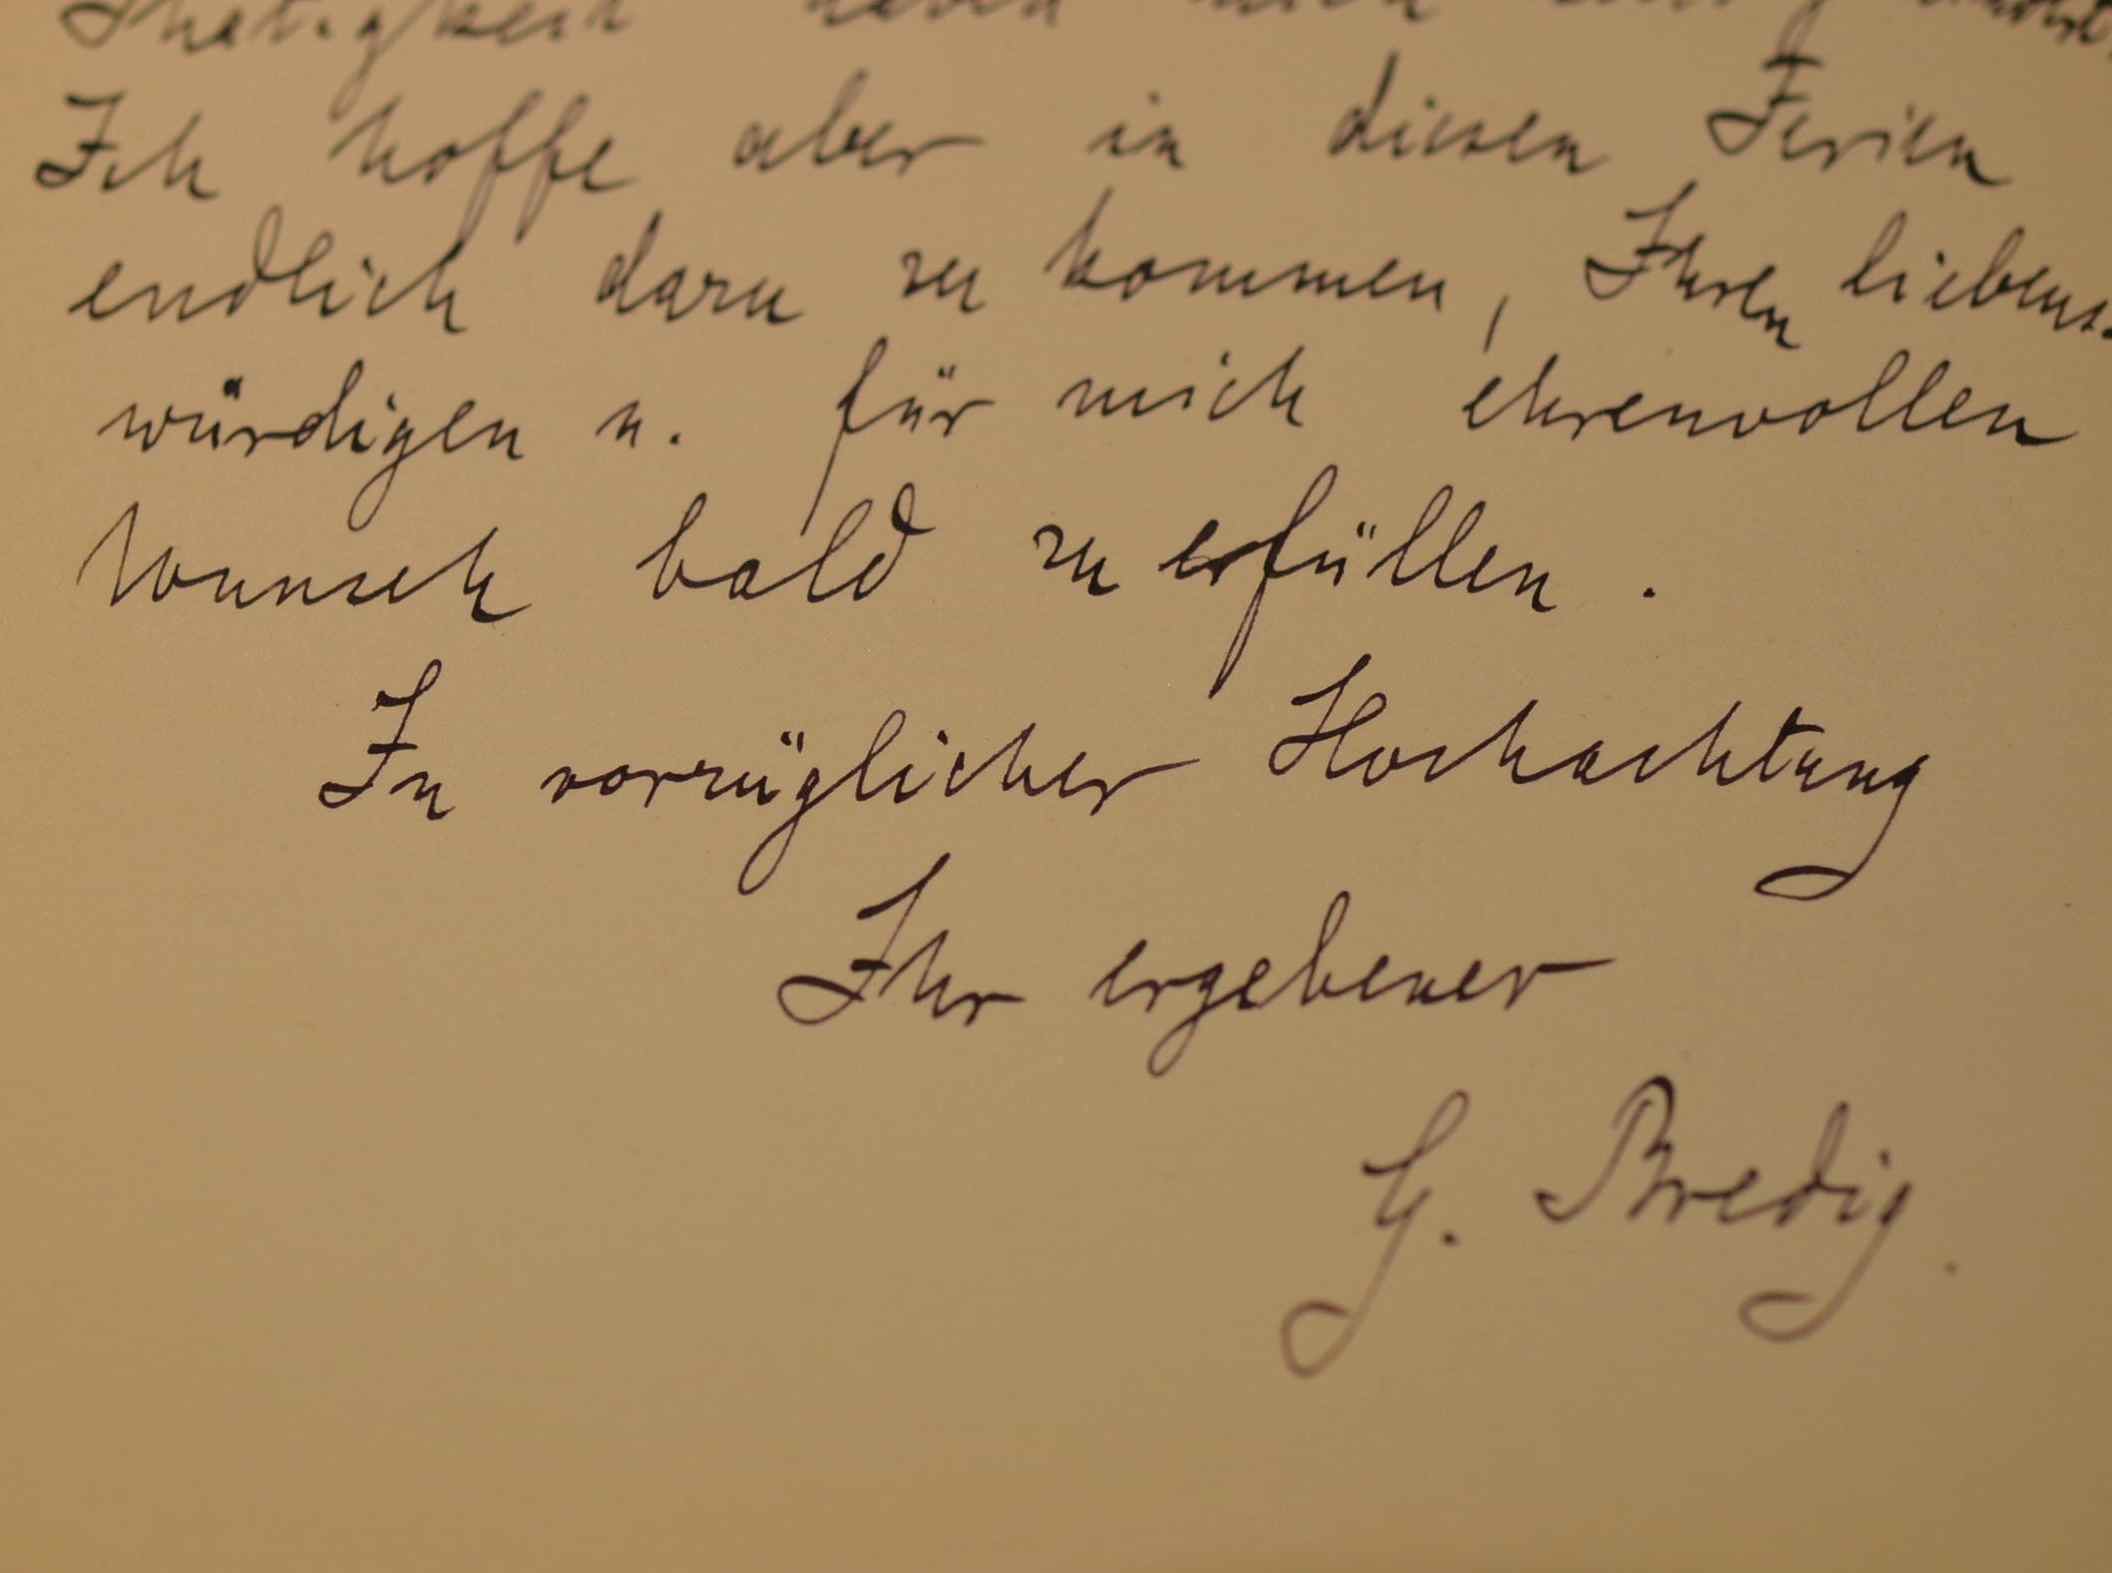 Thätigkeit neben mich
Ich hoffe aber in diesen Ferien
endlich dazu zu kommen, Ihren liebens-
würdigen u. für mich ehrenvollen
Wunsch bald zu erfüllen.
In vorzüglicher Hochachtung
Ihr ergebener
G. Bredig.